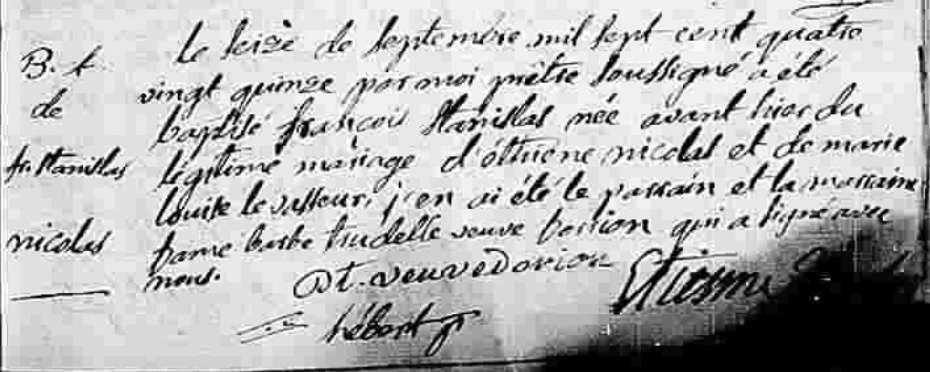 B. t.
de
fr. stanislas
nicolas
le seize de septembre mil sept cent quatre
vingt quinze par moi prêtre soussigné a été
baptisé françois stanislas née avant hier du
légitime mariage d'éttiene nicolas et de marie
louise levasseur, j'en ai été le parrain et la marraine
Dame barbe trudelle veuve Dorion qui a signé avec
nous.
Bt. veuve dorion Etienne
hébert ptr